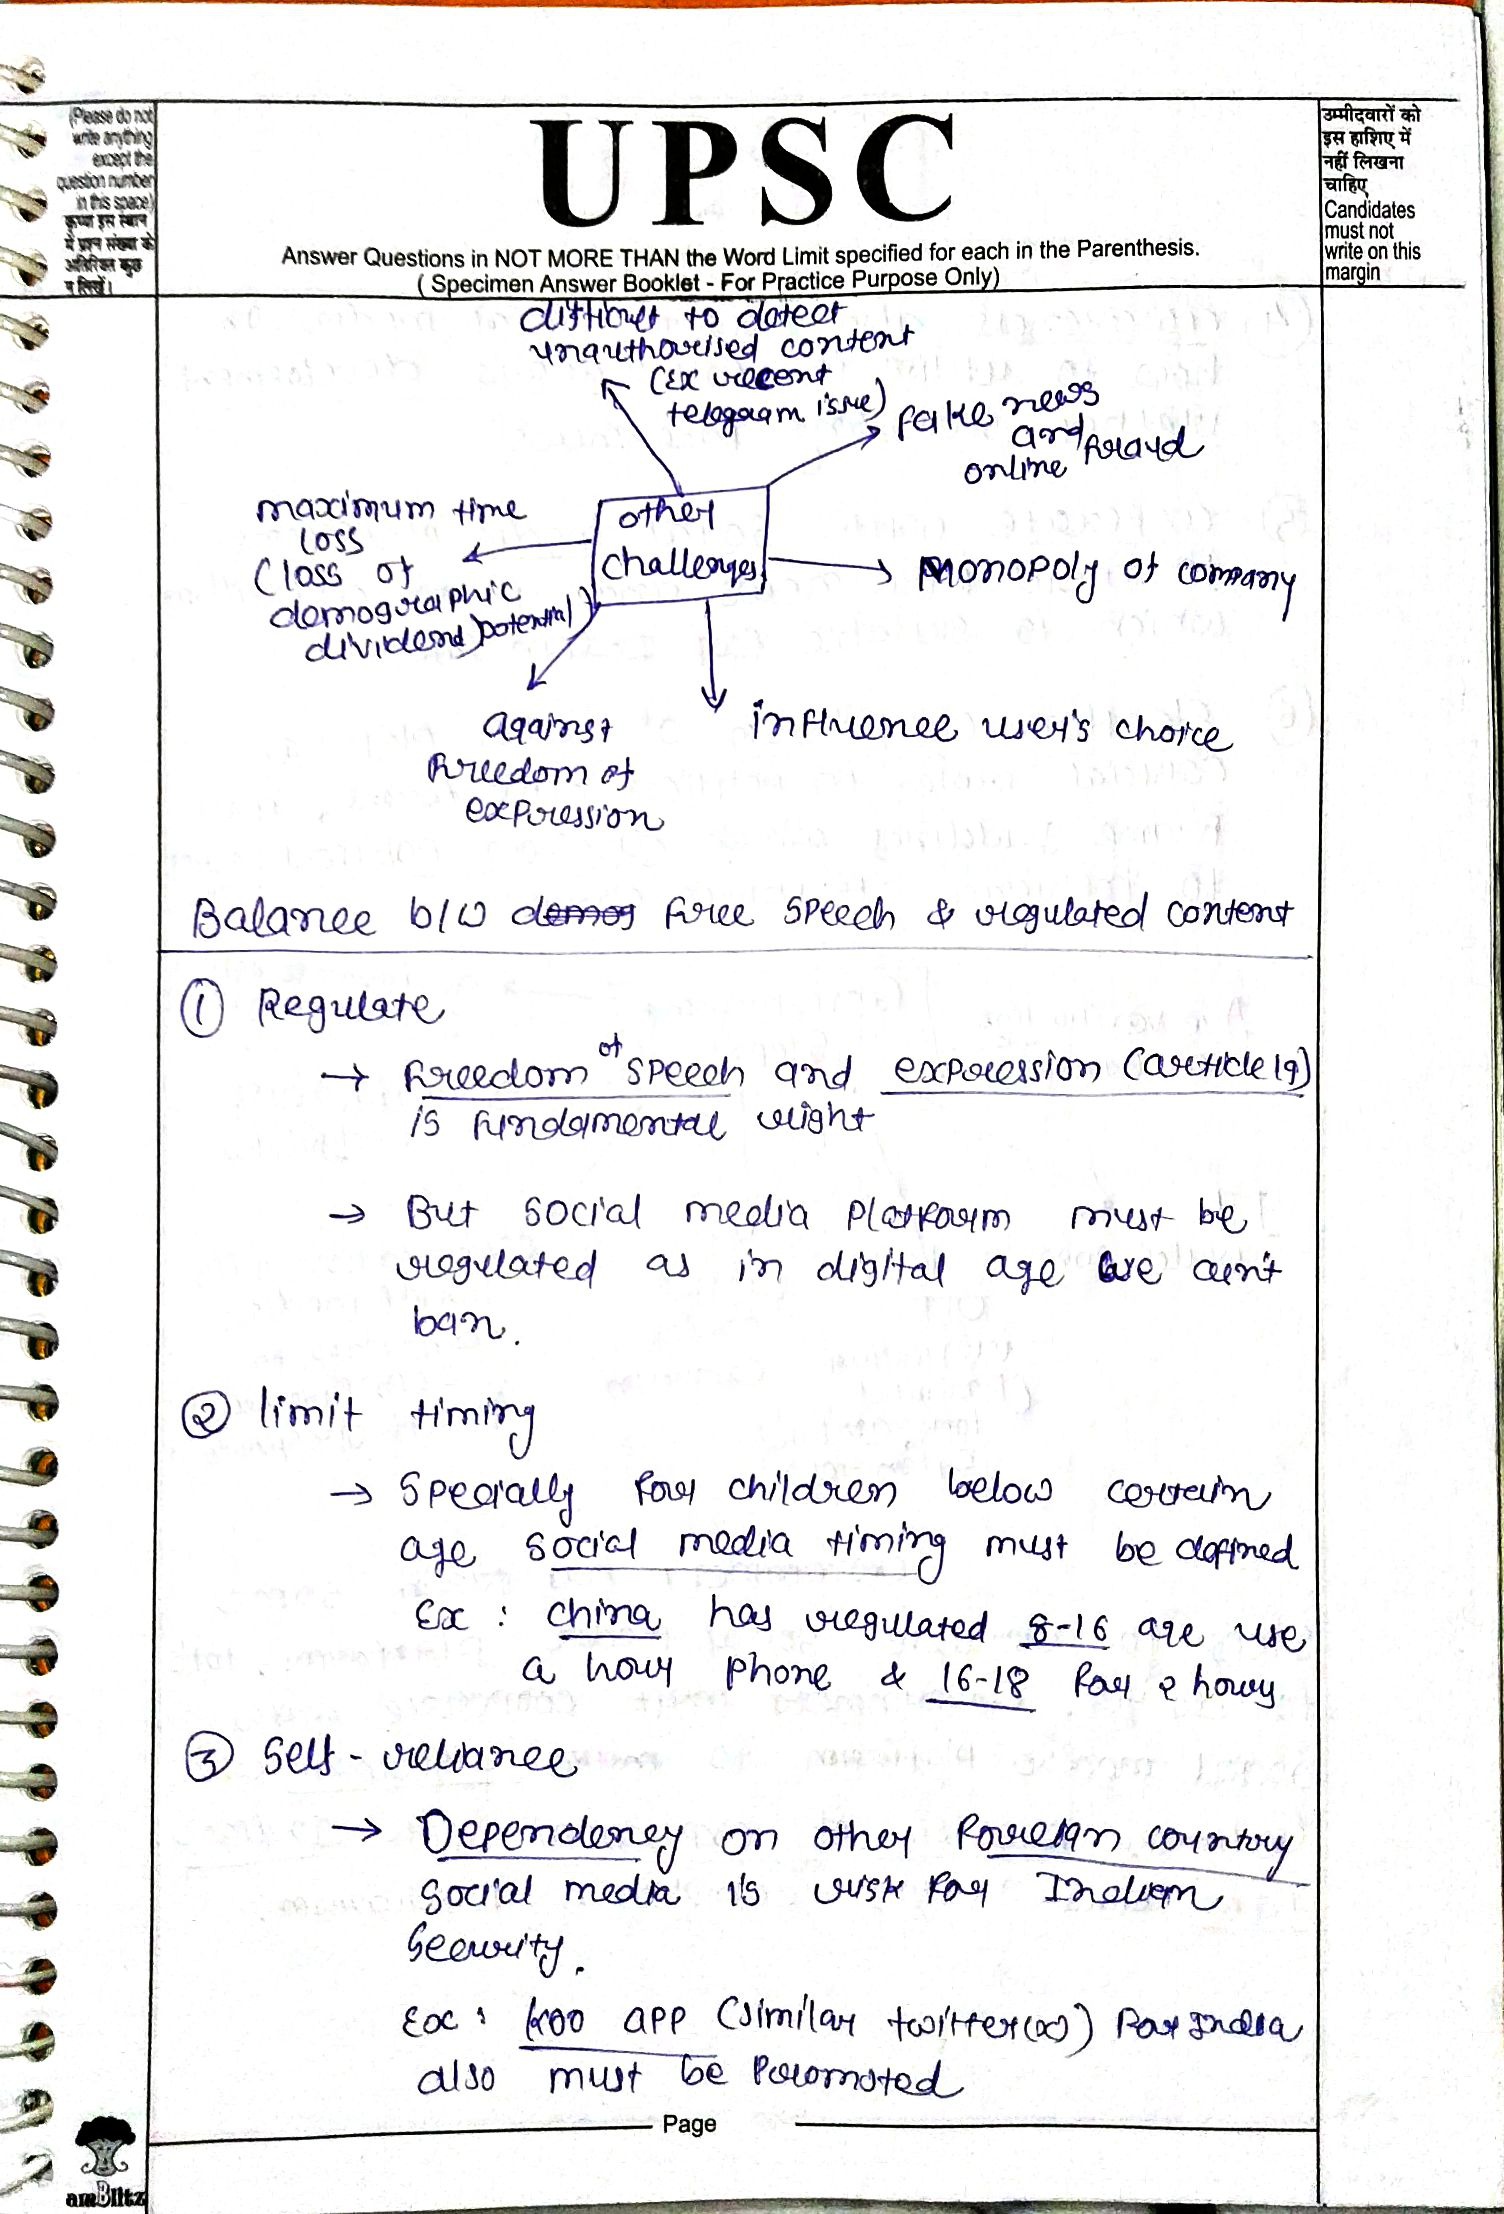 (Please do not
write anything
except the
question number
in this space)
कृपया इस स्थान
में प्रश्न संख्या के
अतिरिक्त कुछ
न लिखें।
UPSC
Answer Questions in NOT MORE THAN the Word Limit specified for each in the Parenthesis.
( Specimen Answer Booklet - For Practice Purpose Only)
उम्मीदवारों को
इस हाशिए में
नहीं लिखना
चाहिए
Candidates
must not
write on this
margin
difficult to detect
unauthorised content
(Ex recent
telegram issue)
fake news
and fraud
online
maximum time
loss
(loss of
demographic
dividend) potential)
other
challenges
Monopoly of company
against
freedom of
expression
influence user's choice
Balance b/w demog free speech & regulated content
① Regulate
→ freedom of speech and expression (article 19)
is fundamental right
→ But social media platform must be
regulated as in digital age we cen't
ban.
② limit timing
→ specially for children below certain
age social media timing must be defined
Ex : china has regulated 8-16 age use
a hour phone & 16-18 for 2 hours
③ self-reliance
→ Dependency on other foreign country
social media is risk for Indian
security.
Ex : koo app (similar twitter(x)) for India
also must be promoted
Page
amBlitz